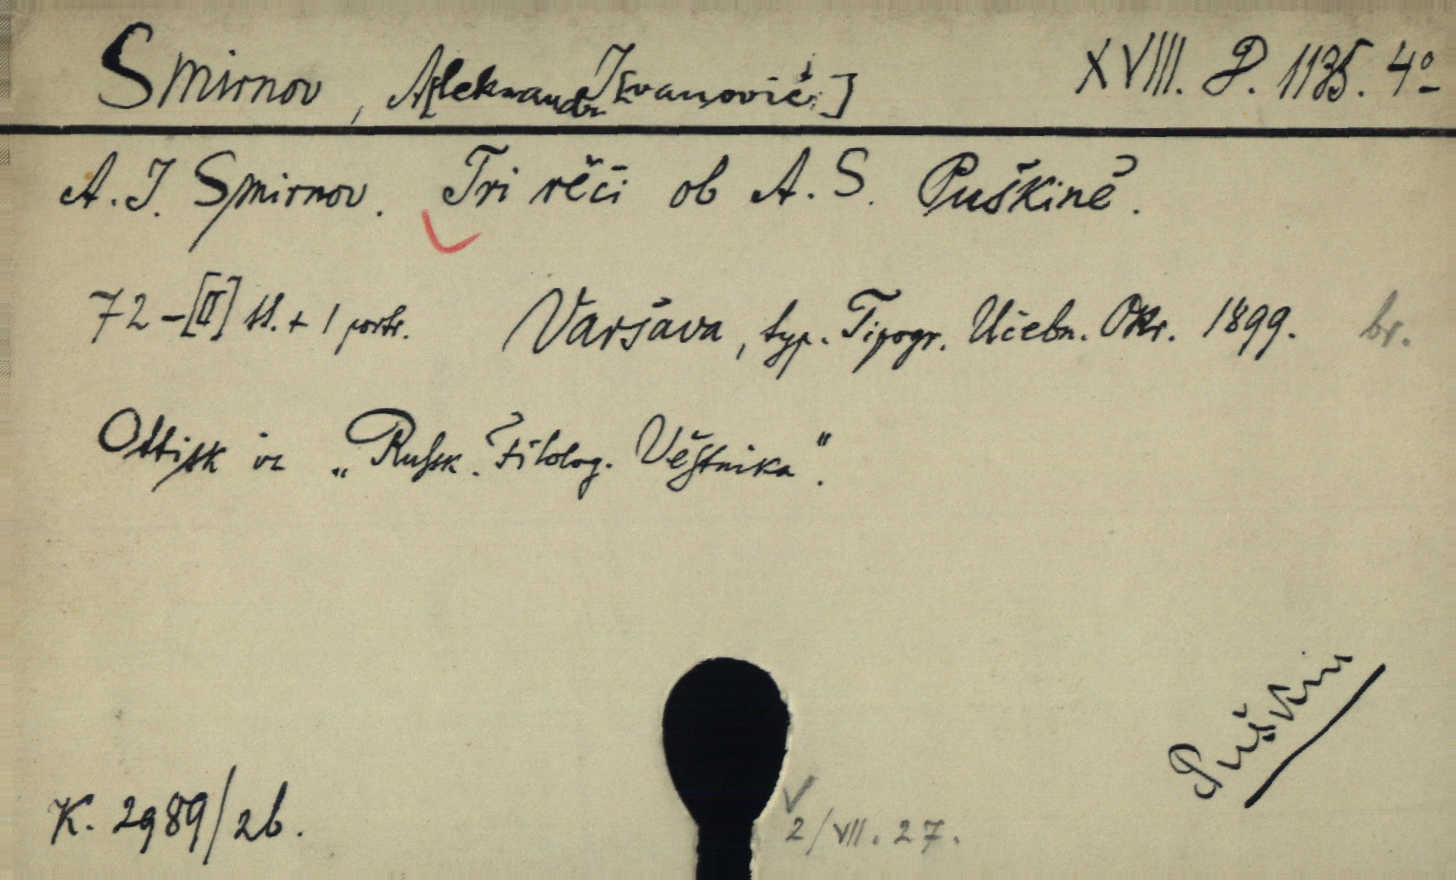 Smirnov, A[leksandr I[vanovič.]
XVIII. D. 1135. 4º
A. I. Smirnov. Tri rěči ob A. S. Puškině.
72-[II] ss. + 1 portr. Varšava, typ. Tipogr. Učebn. Okr. 1899. br.
Ottisk iz „Russk. Filolog. Věstnika".
Puškin
K. 2989/26.
2/VII. 27.